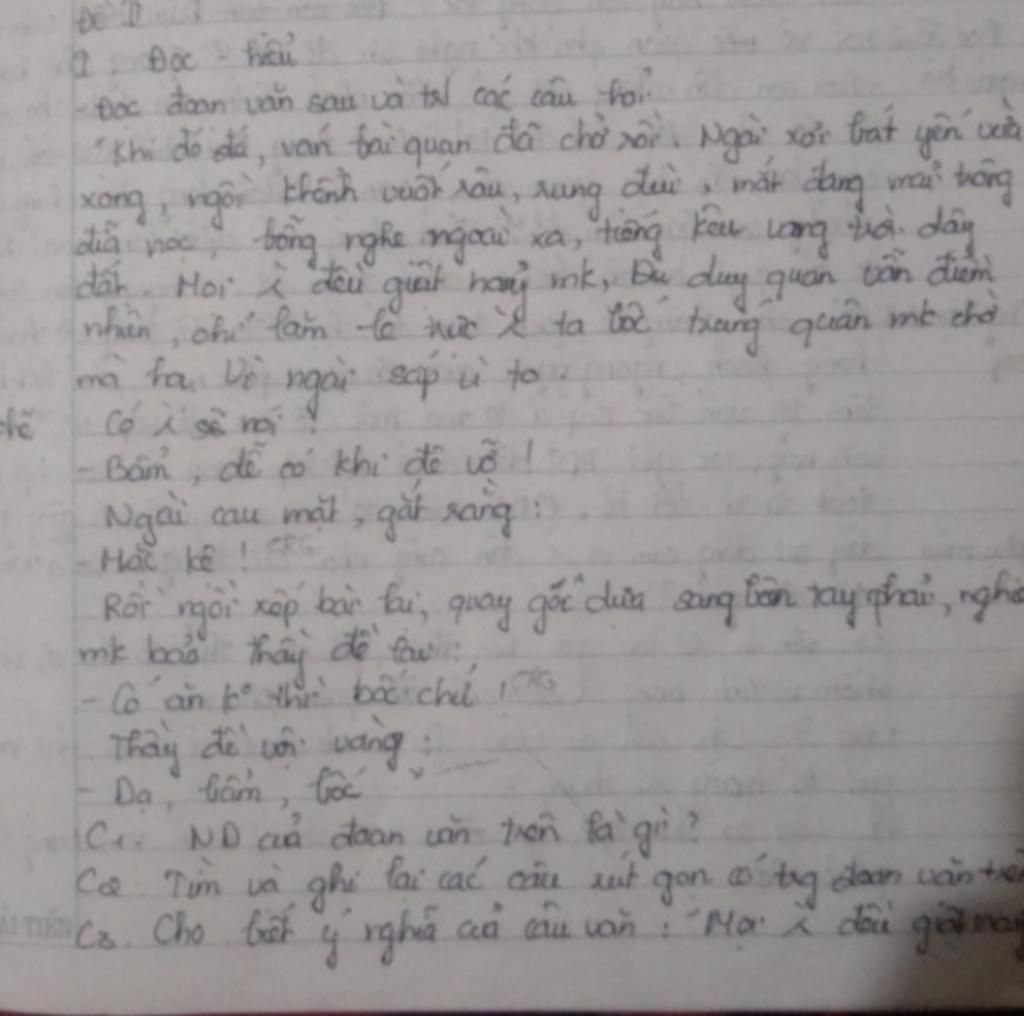 Đề II
I. Đọc - hiểu
- Đọc đoạn văn sau và trl các câu hỏi
"Khi đó đá, ván bài quan đã chờ rồi. Ngài xơi bát yến vừa
xong, ngồi khểnh vuốt râu, rung đùi, mắt đang mải trông
đĩa nọc, bỗng nghe ngoài xa, tiếng kêu vang trời dậy
đất. Mọi λ đều giật nảy mk, Đu duy quan vẫn điềm
nhiên, chỉ lăm le trực λ ta bốc trúng quân mk chờ
mà hạ. Vì ngài sắp ù to.
Có λ sẽ nói!
- Bẩm, dễ có khi đê vỡ!
Ngài cau mặt, gắt rằng:
- Mặc kệ! CRG
Rồi ngồi xếp bài lại, quay gối dựa sang bên tay phải, nghiê
mk bảo thầy đề lại:
- Có ăn ko thì bốc chứ! CRG
Thầy đề vội vàng:
- Dạ, bẩm, bốc "
C1. ND của đoạn văn trên là gì?
C2 Tìm và ghi lại các câu rút gọn có trg đoạn văn trên
C3. Cho biết ý nghĩa của câu văn: "Mọi λ đều giật nảy